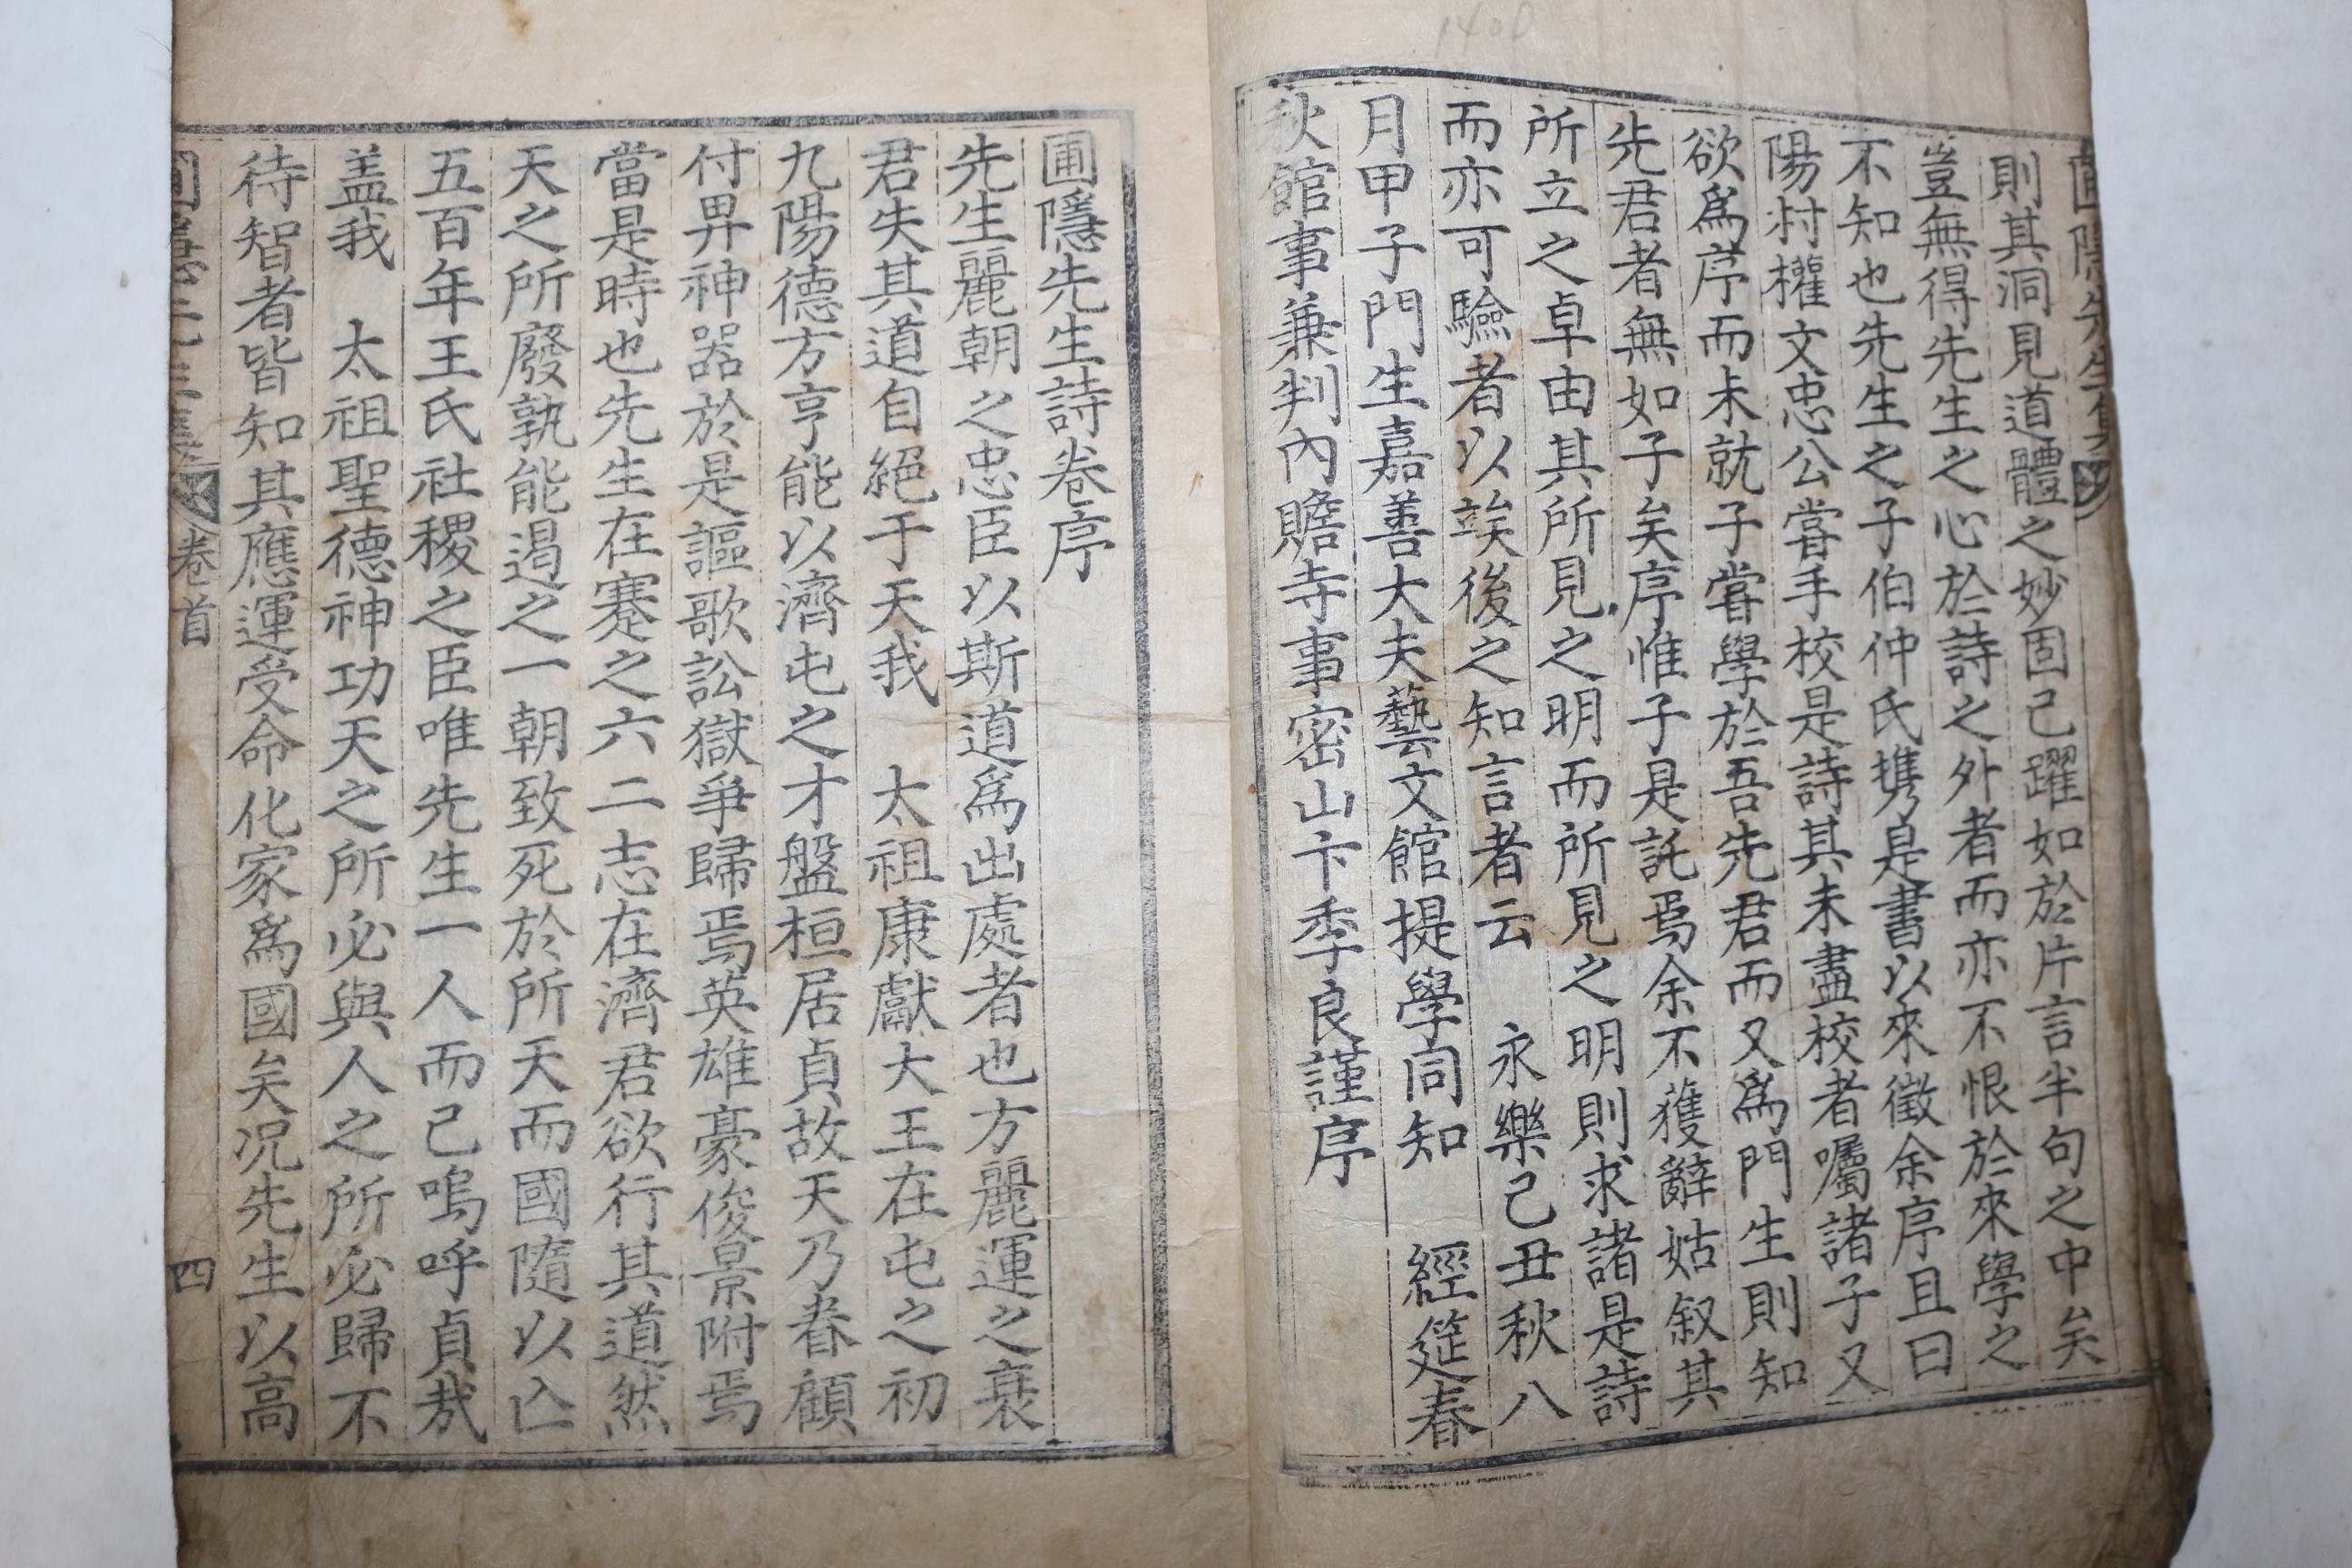 1400
圃隱先生集
則其洞見道體之妙固已躍如於片言半句之中矣
豈無得先生之心於詩之外者而亦不恨於來學之
不知也先生之子伯仲氏携是書以來徵余序且曰
陽村權文忠公嘗手校是詩其未盡校者囑諸子又
欲爲序而未就子嘗學於吾先君而又爲門生則知
先君者無如子矣序惟子是託焉余不獲辭姑叙其
所立之卓由其所見之明而所見之明則求諸是詩
而亦可驗者以竢後之知言者云 永樂己丑秋八
月甲子門生嘉善大夫藝文館提學同知 經筵春
秋館事兼判內贍寺事密山卞季良謹序
圃隱先生詩卷序
先生麗朝之忠臣以斯道爲出處者也方麗運之衰
君失其道自絕于天我 太祖康獻大王在屯之初
九陽德方亨能以濟屯之才盤桓居貞故天乃眷顧
付畀神器於是謳歌訟獄爭歸焉英雄豪俊景附焉
當是時也先生在蹇之六二志在濟君欲行其道然
天之所廢孰能遏之一朝致死於所天而國隨以亾
五百年王氏社稷之臣唯先生一人而已嗚呼貞哉
盖我 太祖聖德神功天之所必與人之所必歸不
待智者皆知其應運受命化家爲國矣况先生以高
圃隱先生集 卷首 四